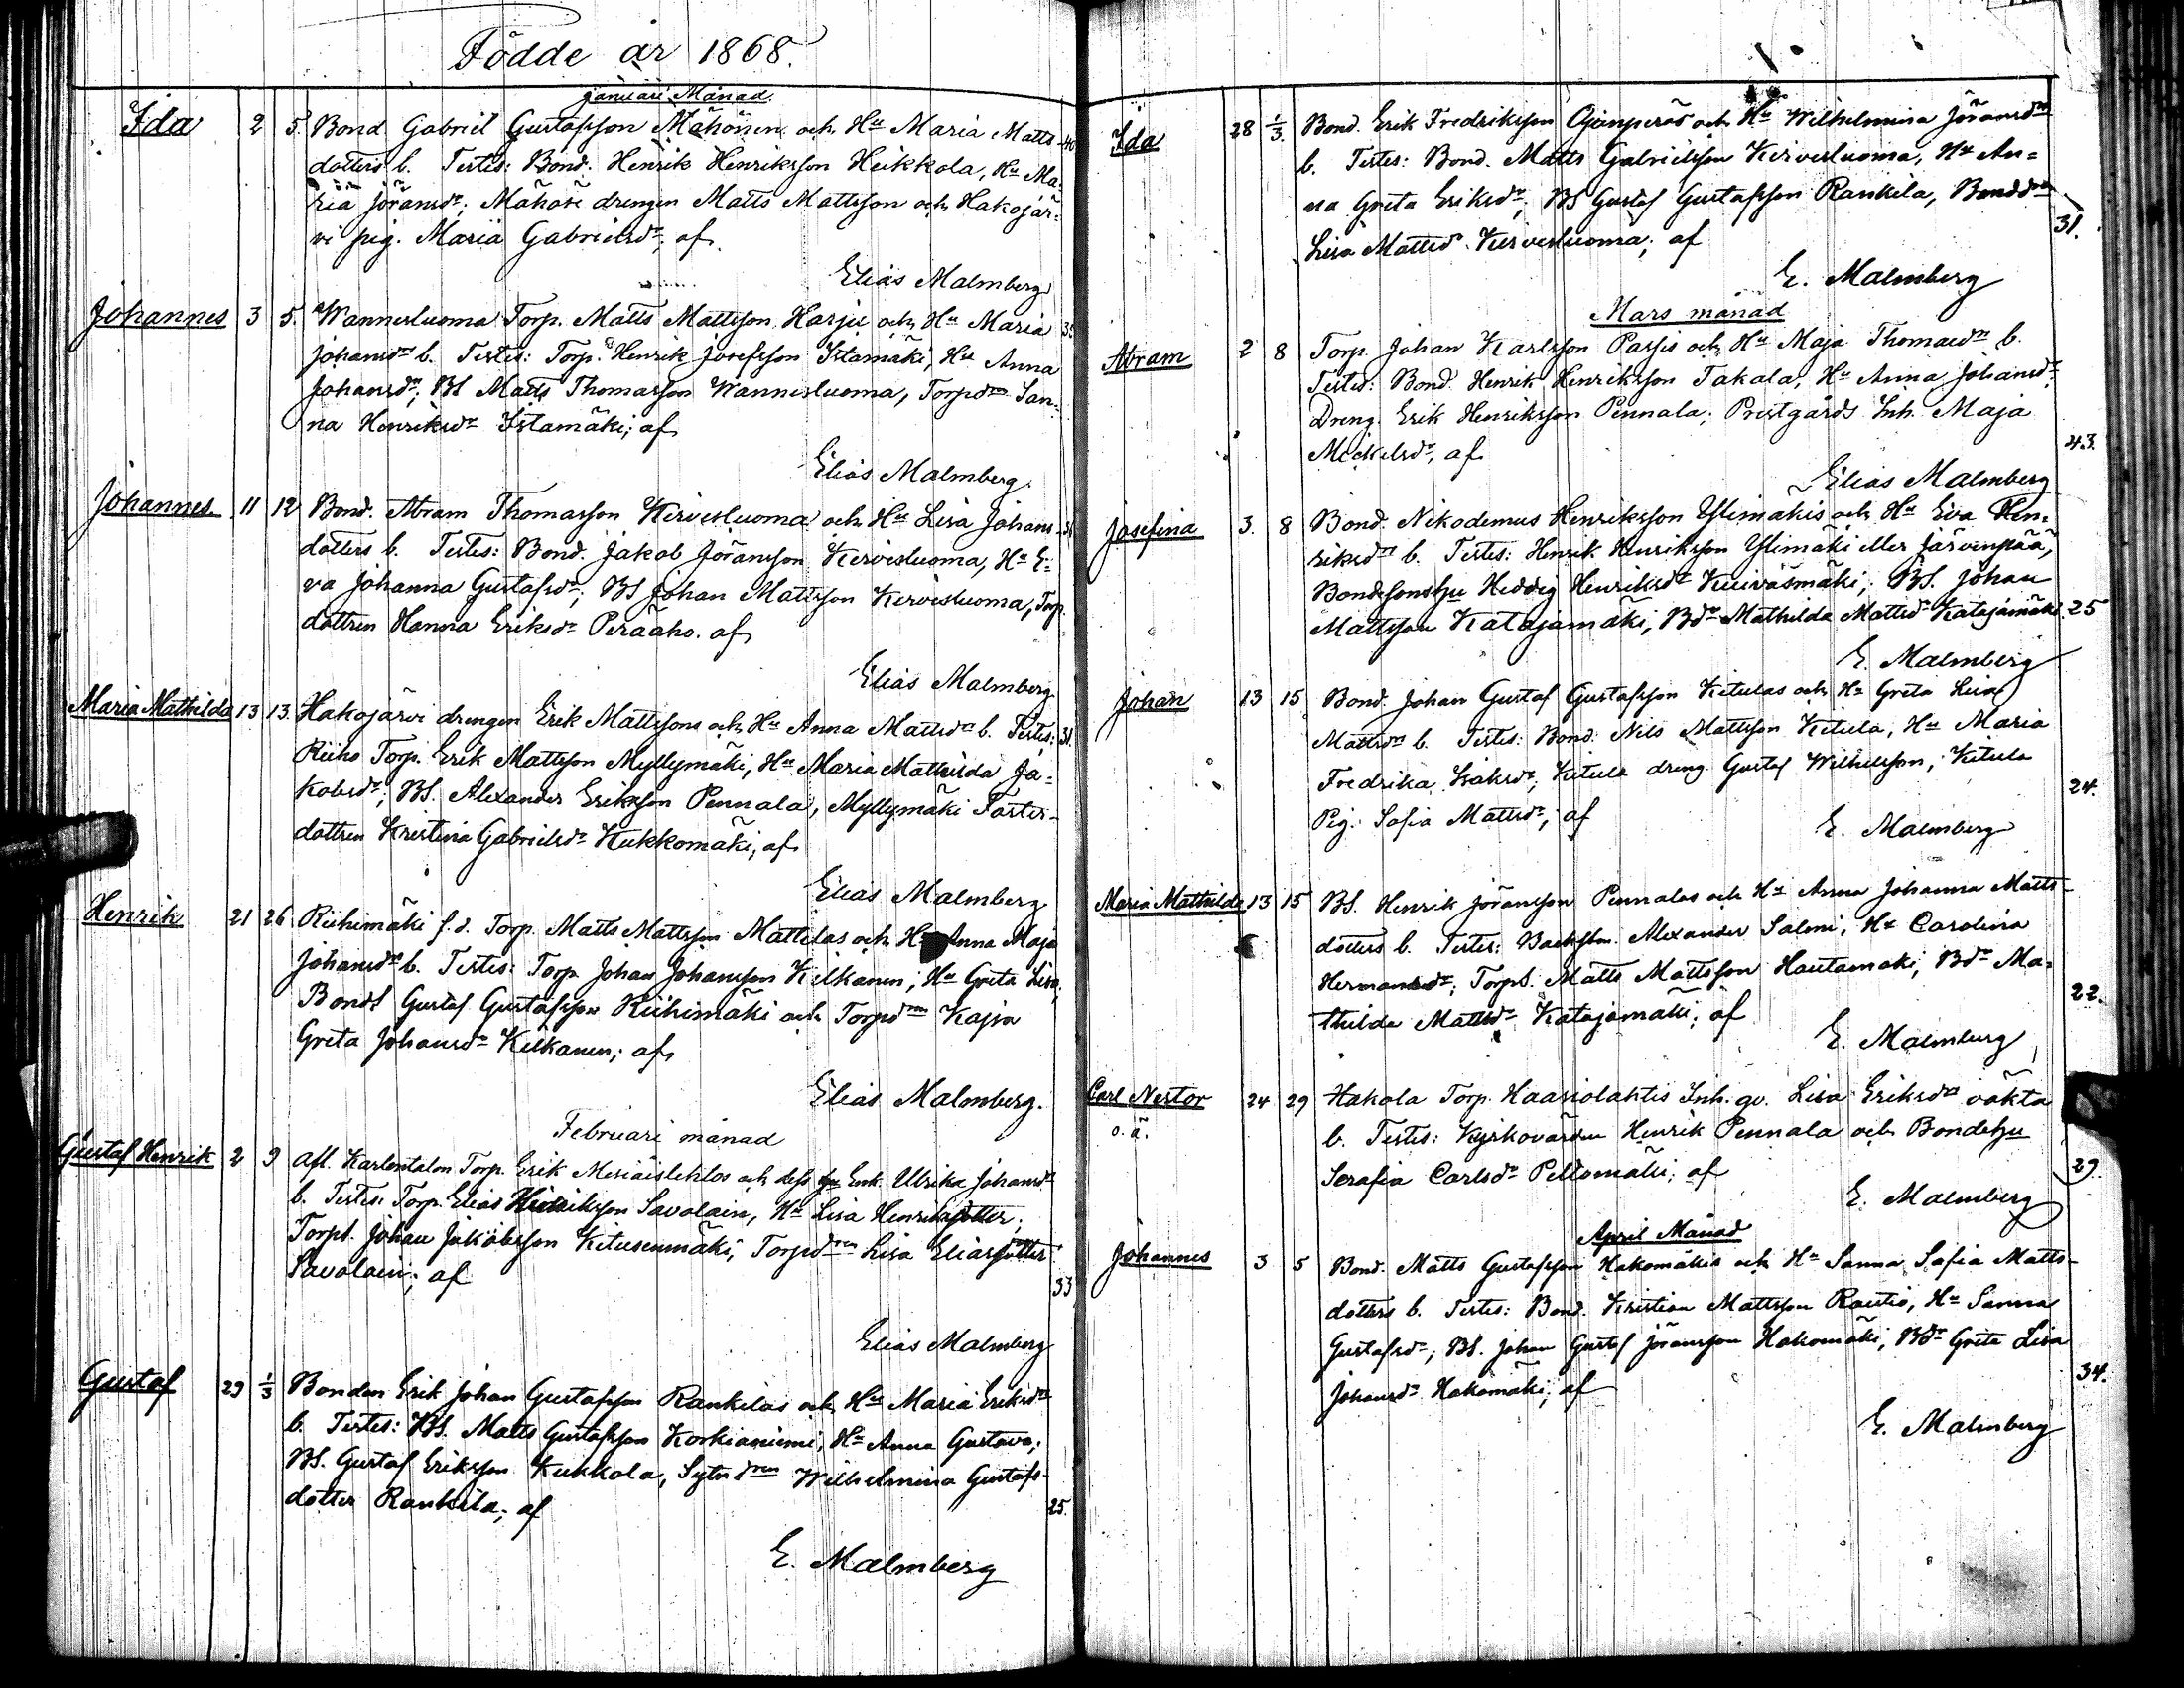 Födde år 1868.
Januari Månad.
Ida 2 5. Bond Gabriel Gustafsson Mähönen och Hu Maria Matts- 40
dotters b. Testes: Bond. Henrik Henriksson Heikkola, Hu Ma-
ria Jöransdr; Mähöri drengen Matts Mattsson och Hakojär-
vi pig. Maria Gabrielsdr; af
Elias Malmberg
Johannes 3 5. Wannesluoma Torp. Matts Mattsson Harju och Hu Maria
Johansdrs b. Testes: Torp. Henrik Josefsson Istamäki, Hu Anna
Johansdr; BS Matts Thomasson Wannesluoma, Torpdrn San-
na Henriksdr Istamäki; af
Elias Malmberg
Johannes 11 12 Bond. Abram Thomasson Kirvesluoma och Hu Lisa Johans-
dotters b. Testes: Bond. Jakob Jöransson Kirvesluoma, Hu E-
va Johanna Gustafsdr; BS Johan Mattsson Kirvesluoma, Torp.
dottren Hanna Eriksdr Peräaho. af
Elias Malmberg
Maria Mathilda 13 13. Hakojärvi drengen Erik Mattssons och Hu Anna Mattsdrs b. Testes: 31.
Riiho Torp. Erik Mattsson Myllymäki, Hu Maria Mathilda Ja-
kobsdr; BS. Alexander Eriksson Pennala, Myllymäki Foster-
dottren Kristina Gabrielsdr Kukkomäki; af
Elias Malmberg
Henrik 21 26 Riihimäki f.d. Torp. Matts Mattsson Mattilas och Hu Anna Maja
Johansdrs b. Testes: Torp. Johan Johansson Kilkanen; Hu Greta Lisa,
BondS Gustaf Gustafsson Riihimäki och Torpdrn Kajsa
Greta Johansdr Kilkanen; af
Elias Malmberg.
Februari månad
Gustaf Henrik 2 9 Afl. Karlentalon Torp. Erik Mesiäislehtos och dess Enk. Ulrika Johansdrs
b. Testes: Torp. Elias Henriksson Savolain, Hu Lisa Henriksdotter;
TorpS. Johan Jakobsson Kitusenmäki, Torpdrn Lisa Eliasdotter
Savolain; af
33
Elias Malmberg
Gustaf 29 1/3 Bonden Erik Johan Gustafsson Rankilas och Hu Maria Eriksdrs
b. Testes: BS. Matts Gustafsson Korkianiemi, Hu Anna Gustava;
BS. Gustaf Eriksson Kukkola, Sytn drn Wilhelmina Gustafs-
dotter Rankila; af
25.
E. Malmberg
Ida 28 1/3. Bond. Erik Fredriksson Ojanperäs och Hu Wilhelmina Jöransdrs
b. Testes: Bond. Matts Gabrielsson Kirvesluoma, Hu An-
na Greta Eriksdr; BS Gustaf Gustafsson Rankila, Bonddrn
Lisa Mattsdr Kirvesluoma; af
31.
E. Malmberg
Mars månad
Abram 2 8 Torp. Johan Karlsson Passis och Hu Maja Thomasdrs b.
Testes: Bond. Henrik Henriksson Takala, Hu Anna Johansdr;
Dreng. Erik Henriksson Pennala; Prestgårds Inh. Maja
Mickelsdr; af
43.
Elias Malmberg
Josefina 3. 8 Bond. Nikodemus Henriksson Ylimäkis och Hu Eva Hen-
riksdrs b. Testes: Henrik Henriksson Ylimäki eller Järvenpää,
Bondesonshu Heddig Henriksdr Kuiväsmäki; BS. Johan
Mattsson Katajamäki, Bdr Mathilda Mattsdr Katajamäki. 25
E. Malmberg
Johan 13 15 Bond. Johan Gustaf Gustafsson Ketulas och Hu Greta Lisa
Mattsdrs b. Testes: Bond. Nils Mattsson Ketula, Hu Maria
Fredrika Isaksdr; Ketula dreng Gustaf Wilhelsson, Ketula
Pig. Sofia Mattsdr; af
24.
E. Malmberg
Maria Mathilda 13 15 BS. Henrik Jöransson Pennalas och Hu Anna Johanna Matts-
dotters b. Testes: Backstm. Alexander Salmi, Hu Carolina
Hermansdr; TorpS. Matts Mattsson Hautamäki, Bdr Ma-
thilda Mattsdr Katajamäki; af
22.
E. Malmberg
Carl Nestor 24 29 Hakola Torp. Haasiolahtis Inh. qv. Lisa Eriksdrs oäkta
o. ä. b. Testes: Kyrkovärden Henrik Pennala och Bondehu
Serafia Carlsdr Peltomäki; af
29.
E. Malmberg
April Månad
Johannes 3 5 Bond. Matts Gustafsson Hakomäkis och Hu Sanna Sofia Matts-
dotters b. Testes: Bond. Kristian Mattsson Rautio, Hu Sanna
Gustafsdr; BS. Johan Gustaf Jöransson Hakomäki, Bdr Greta Lisa
Johansdr Hakomäki; af
34.
E. Malmberg